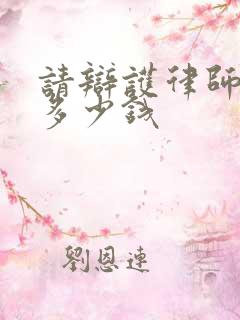 請辯護律師
多少錢
劉恩連